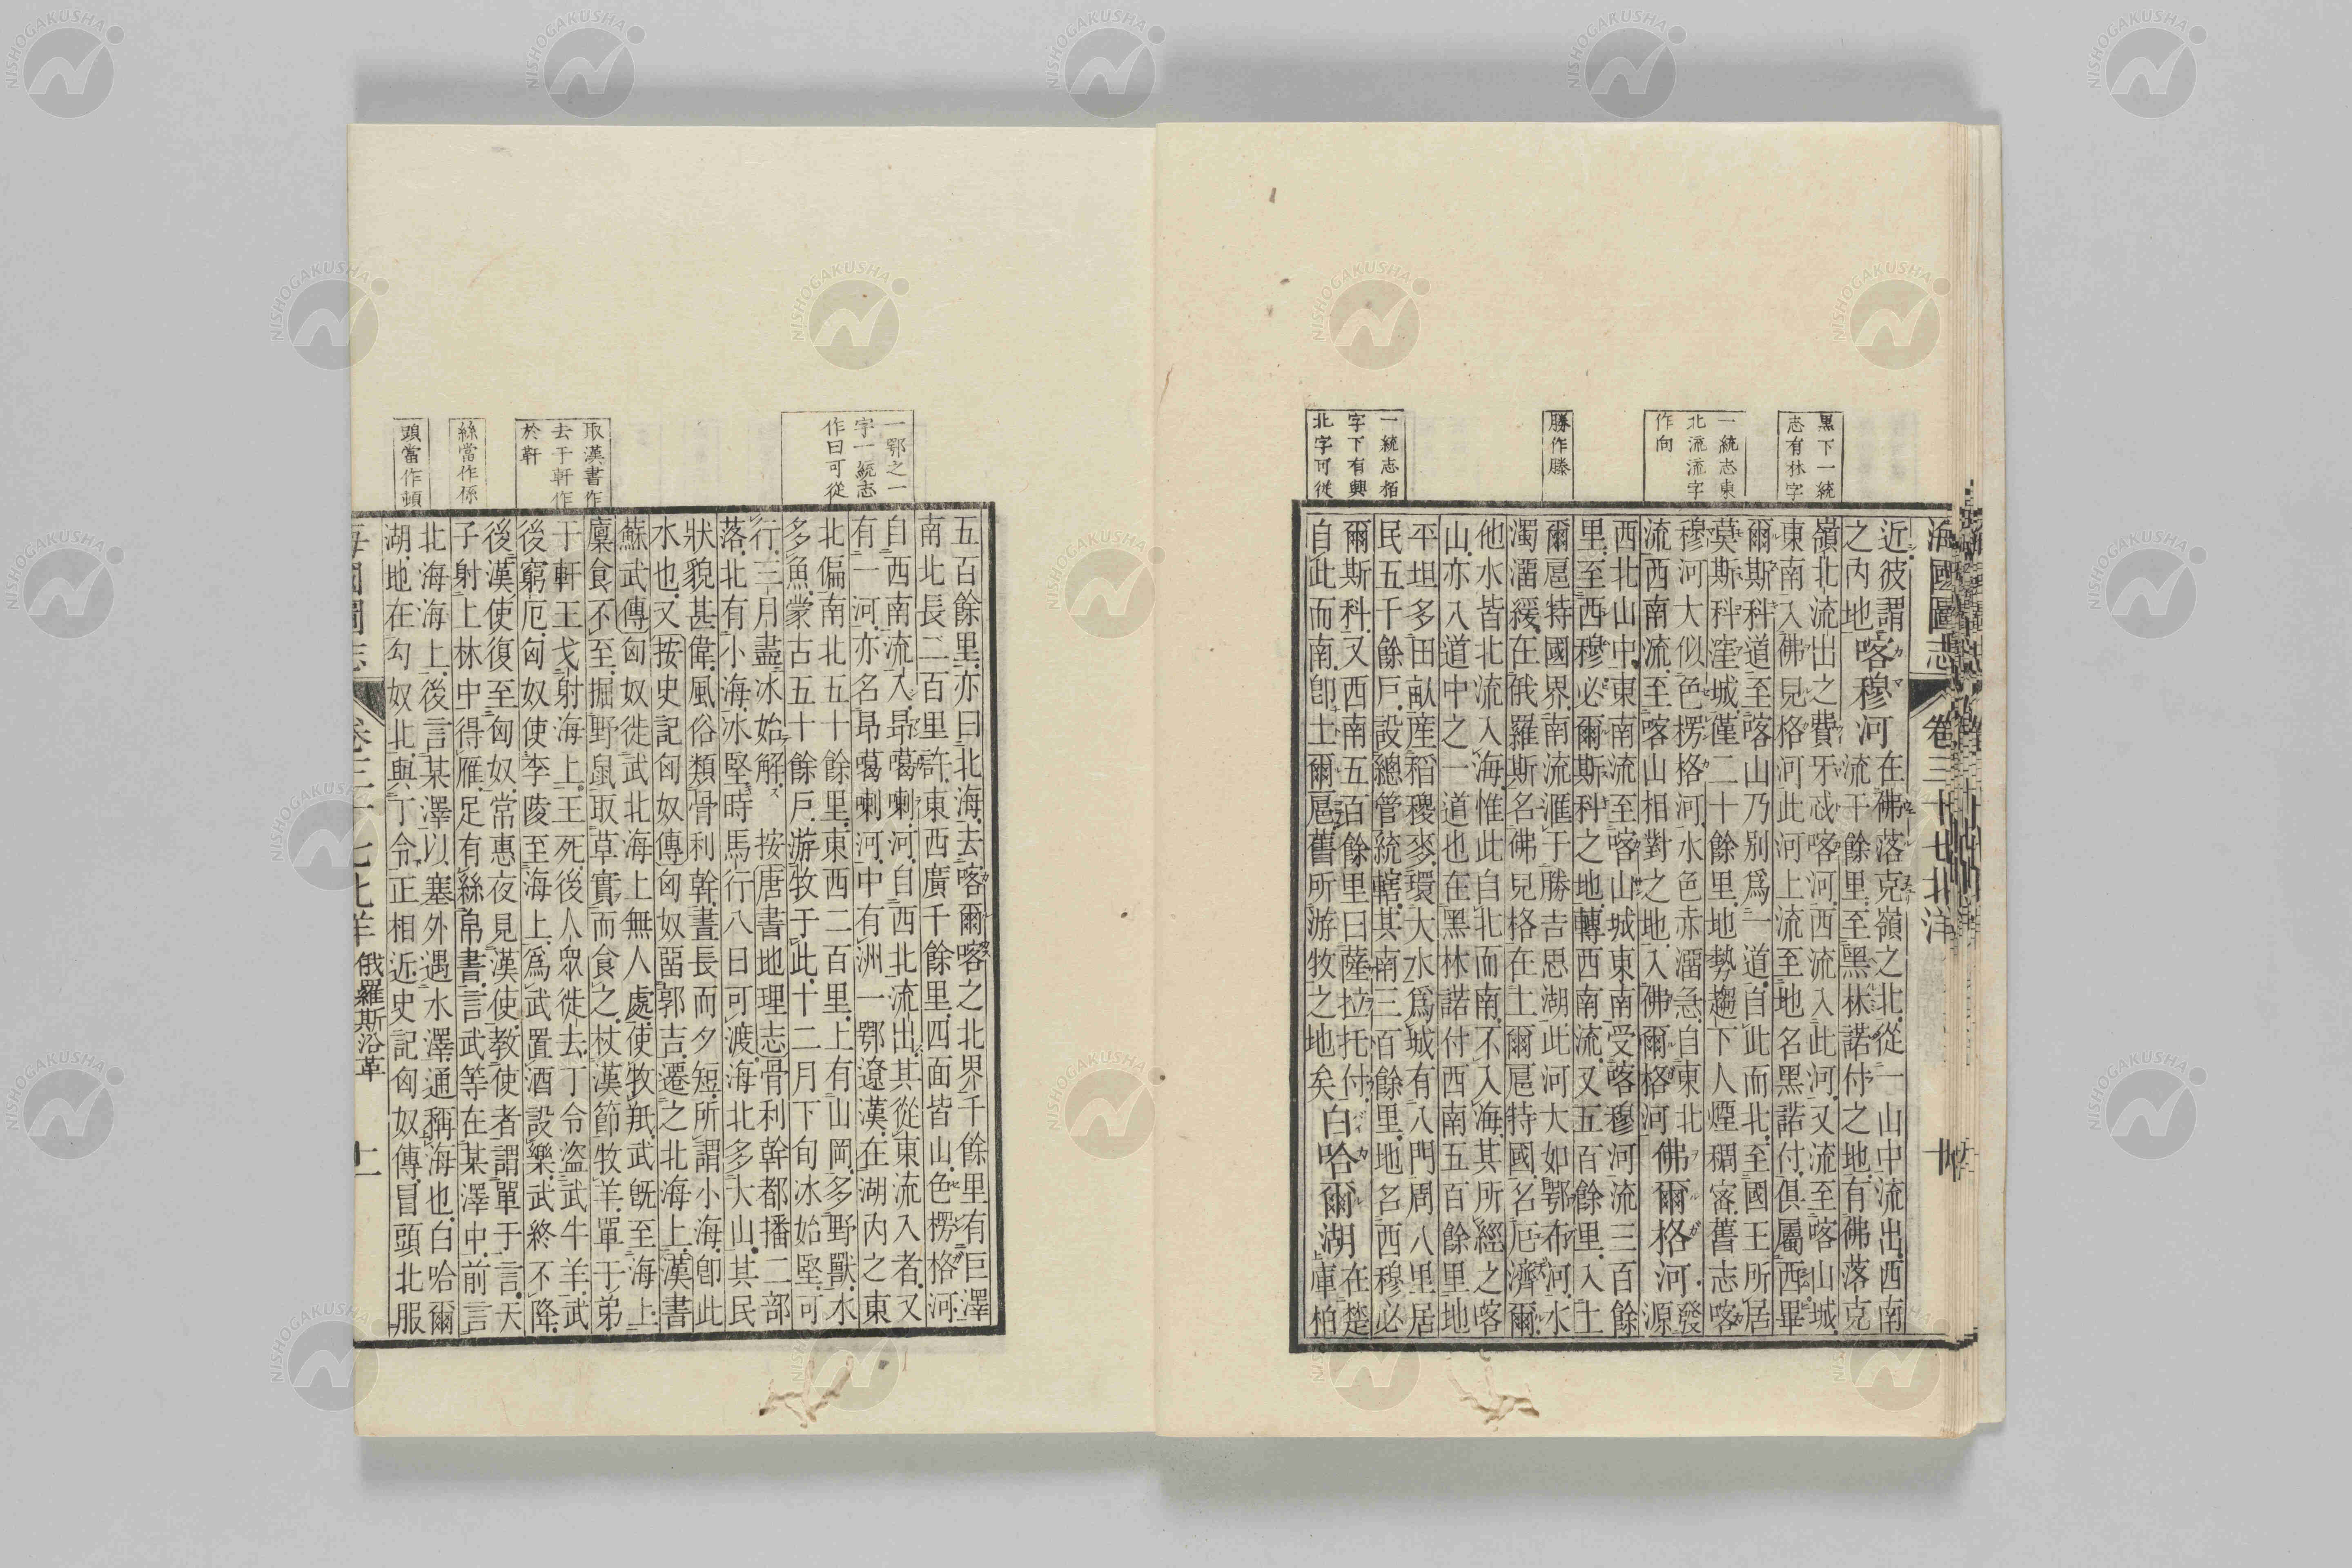 海國圖志 卷三十七北洋
近彼謂喀穆河在佛落克嶺之北從一山中流出西南
之內地喀穆河流千餘里至黑林諾付之地有佛落克
嶺北流出之費牙忒喀河西流入此河又流至喀山城
東南入佛兒格河此河上流至地名黑諾付俱屬西畢
爾斯科道至喀山乃別爲一道自此而北至國王所居
莫斯科窪城僅二十餘里地勢趨下人煙稠密舊志喀
穆河大似色楞格河水色赤溜急自東北佛爾格河發源
流西南流至喀山相對之地入佛爾格河
西北山中東南流至喀山城東南受喀穆河流三百餘
里至西穆必爾斯科之地轉西南流又五百餘里入土
爾扈特國界南流滙于勝吉思湖此河大如鄂布河水
濁溜緩在俄羅斯名佛兒格在土爾扈特國名厄濟爾
他水皆北流入海惟此自北而南不入海其所經之喀
山亦入道中之一道也在黑林諾付西南五百餘里地
平坦多田畝産稻稷麥環大水爲城有八門周八里居
民五千餘戶設總管統轄其南三百餘里地名西穆必
爾斯科又西南五百餘里曰薩拉托付
自此而南卽土爾扈舊所游牧之地矣白哈爾湖在楚庫柏
黑下一統
志有林字
一統志東
北流流字
作向
勝作滕
一統志栢
字下有興
北字可從
五百餘里亦曰北海去喀爾喀之北界千餘里有巨澤
南北長二百里許東西廣千餘里四面皆山色楞格河
自西南流入昂噶喇河自西北流出其從東流入者又
有一河亦名昂噶喇河中有洲一鄂遼漢在湖內之東
北偏南北五十餘里東西二百里上有山岡多野獸水
多魚蒙古五十餘戶游牧于此十二月下旬冰始堅可
行三月盡冰始解 按唐書地理志骨利幹都播二部
落北有小海冰堅時馬行八日可渡海北多大山其民
狀貌甚偉風俗類骨利幹晝長而夕短所謂小海卽此
水也又按史記匈奴傳匈奴畱郭吉遷之北海上漢書
蘇武傳匈奴徙武北海上無人處使牧羝武旣至海上
廩食不至掘野鼠取草實而食之杖漢節牧羊單于弟
于軒王弋射海上王死後人衆徙去丁令盜武牛羊武
後窮厄匈奴使李陵至海上爲武置酒設樂武終不降
後漢使復至匈奴常惠夜見漢使教使者謂單于言天
子射上林中得雁足有絲帛書言武等在某澤中前言
北海海上後言某澤以塞外遇水澤通稱海也白哈爾
湖地在匈奴北與丁令正相近史記匈奴傳冒頭北服
海國圖志 卷三十七北洋 俄羅斯沿革 十一
一鄂之一
字一統志
作曰可從
取漢書作
去于軒作
於靬
絲當作係
頭當作頓